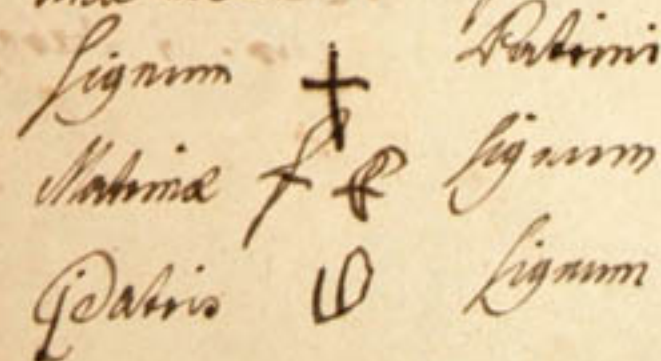 Signum + Patrini
Matrinæ Signum
Patris Signum